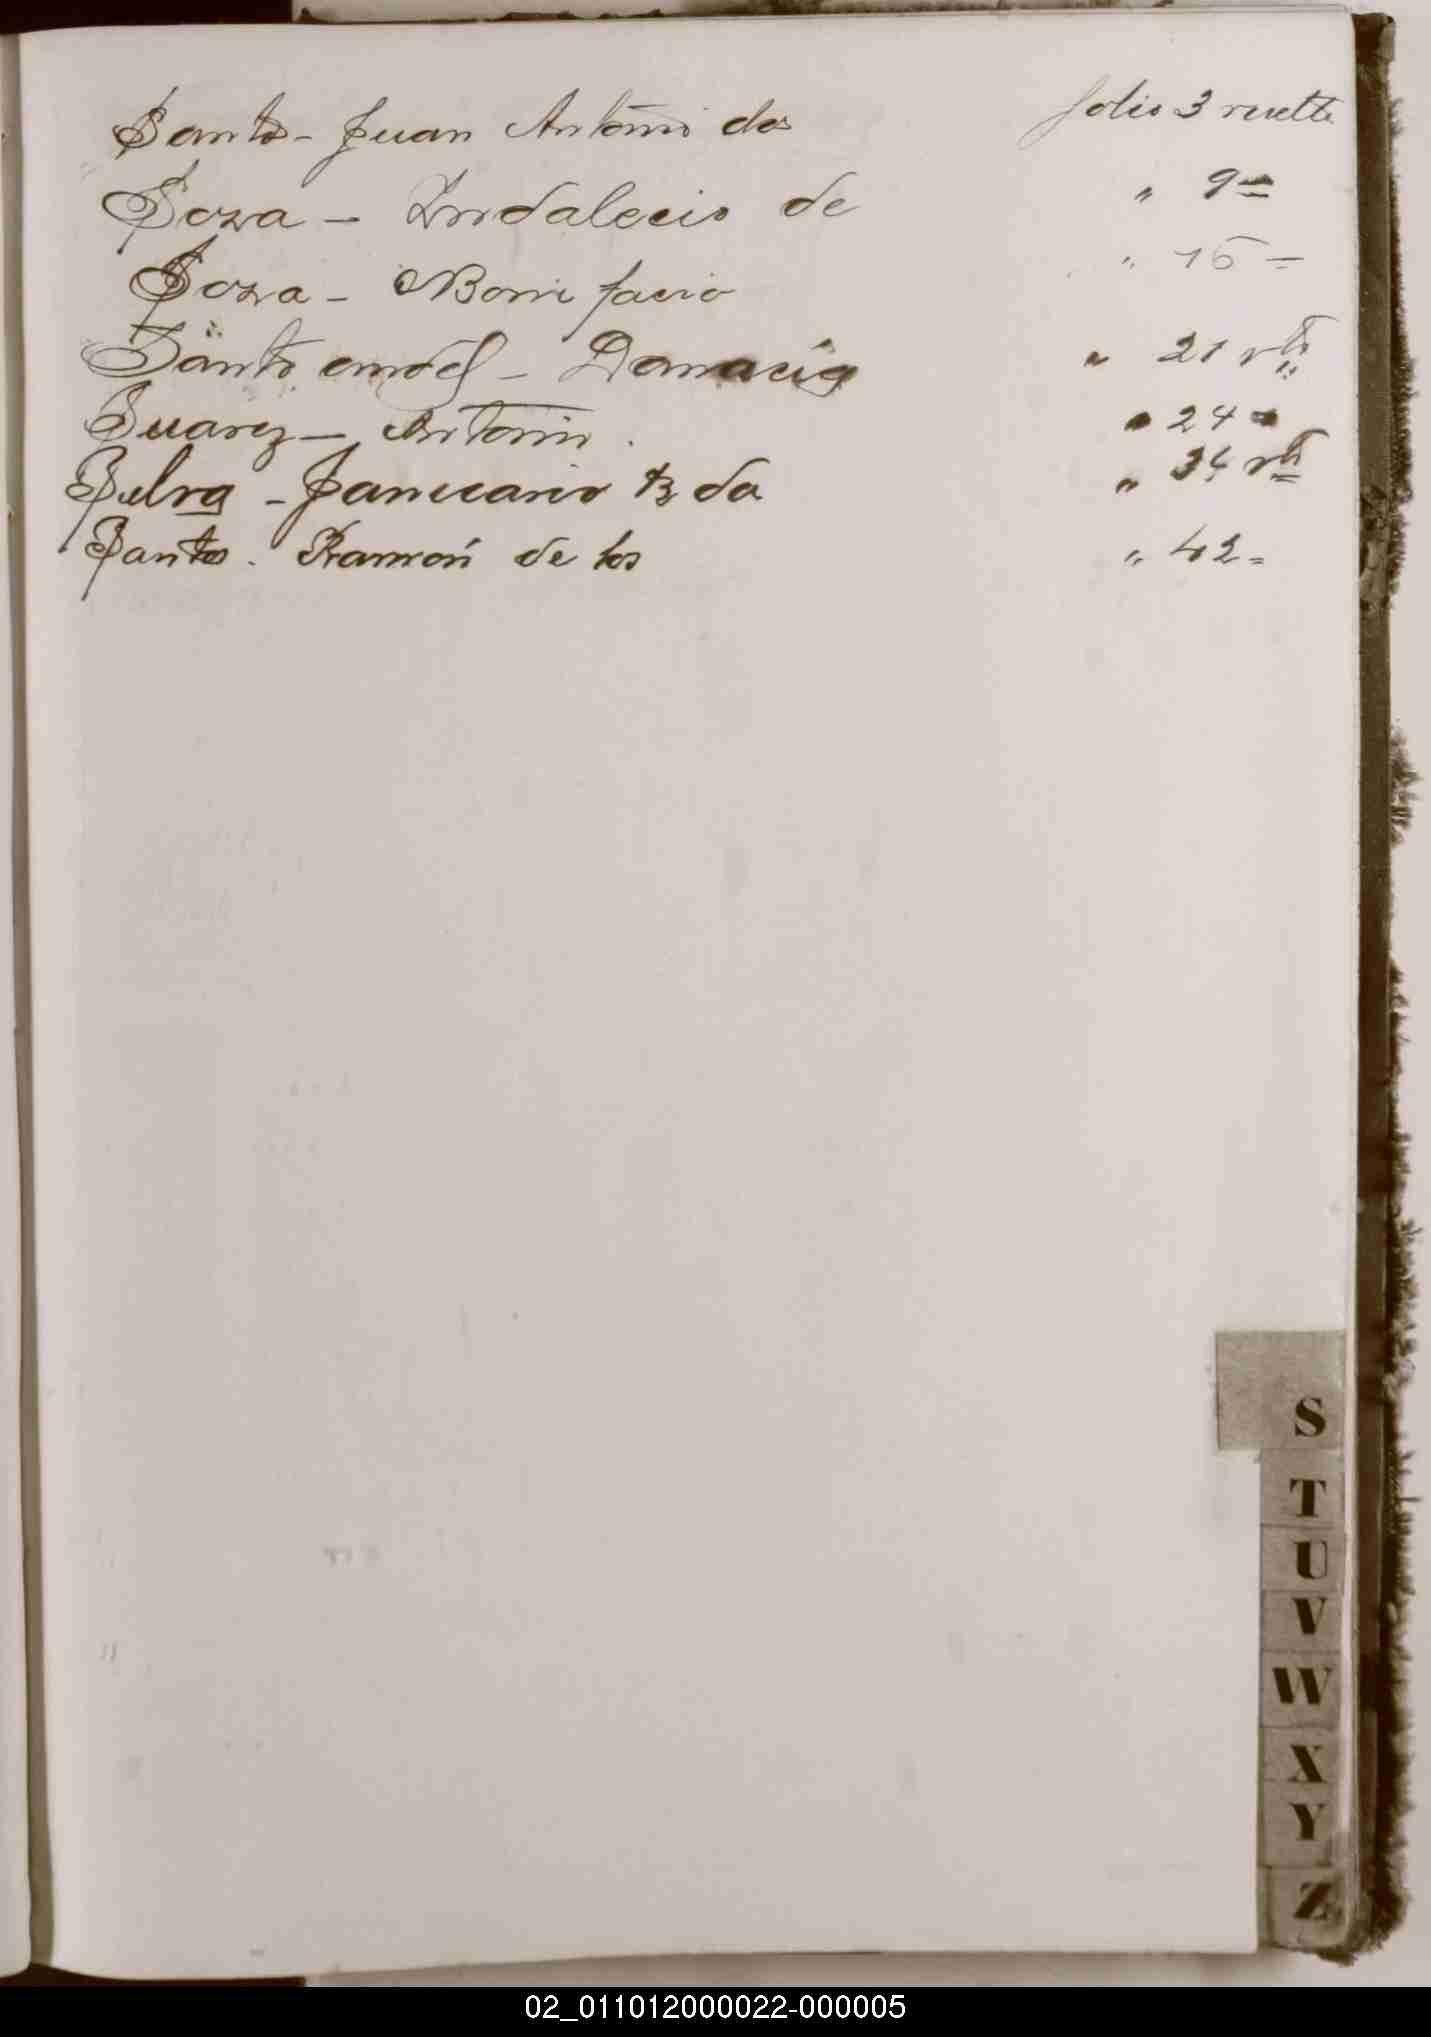 Santos - Juan Antonio dos folio 3 vuelto
Soza - Indalecio de " 9 =
Soza - Bonifacio " 15 =
Santo Danacia " 21 vto
Suarez - Antonio. " 24 "
Januario da " 34 vto
Santos. Ramón de los " 42 =
S
T
U
V
W
X
Y
Z
02_011012000022-000005